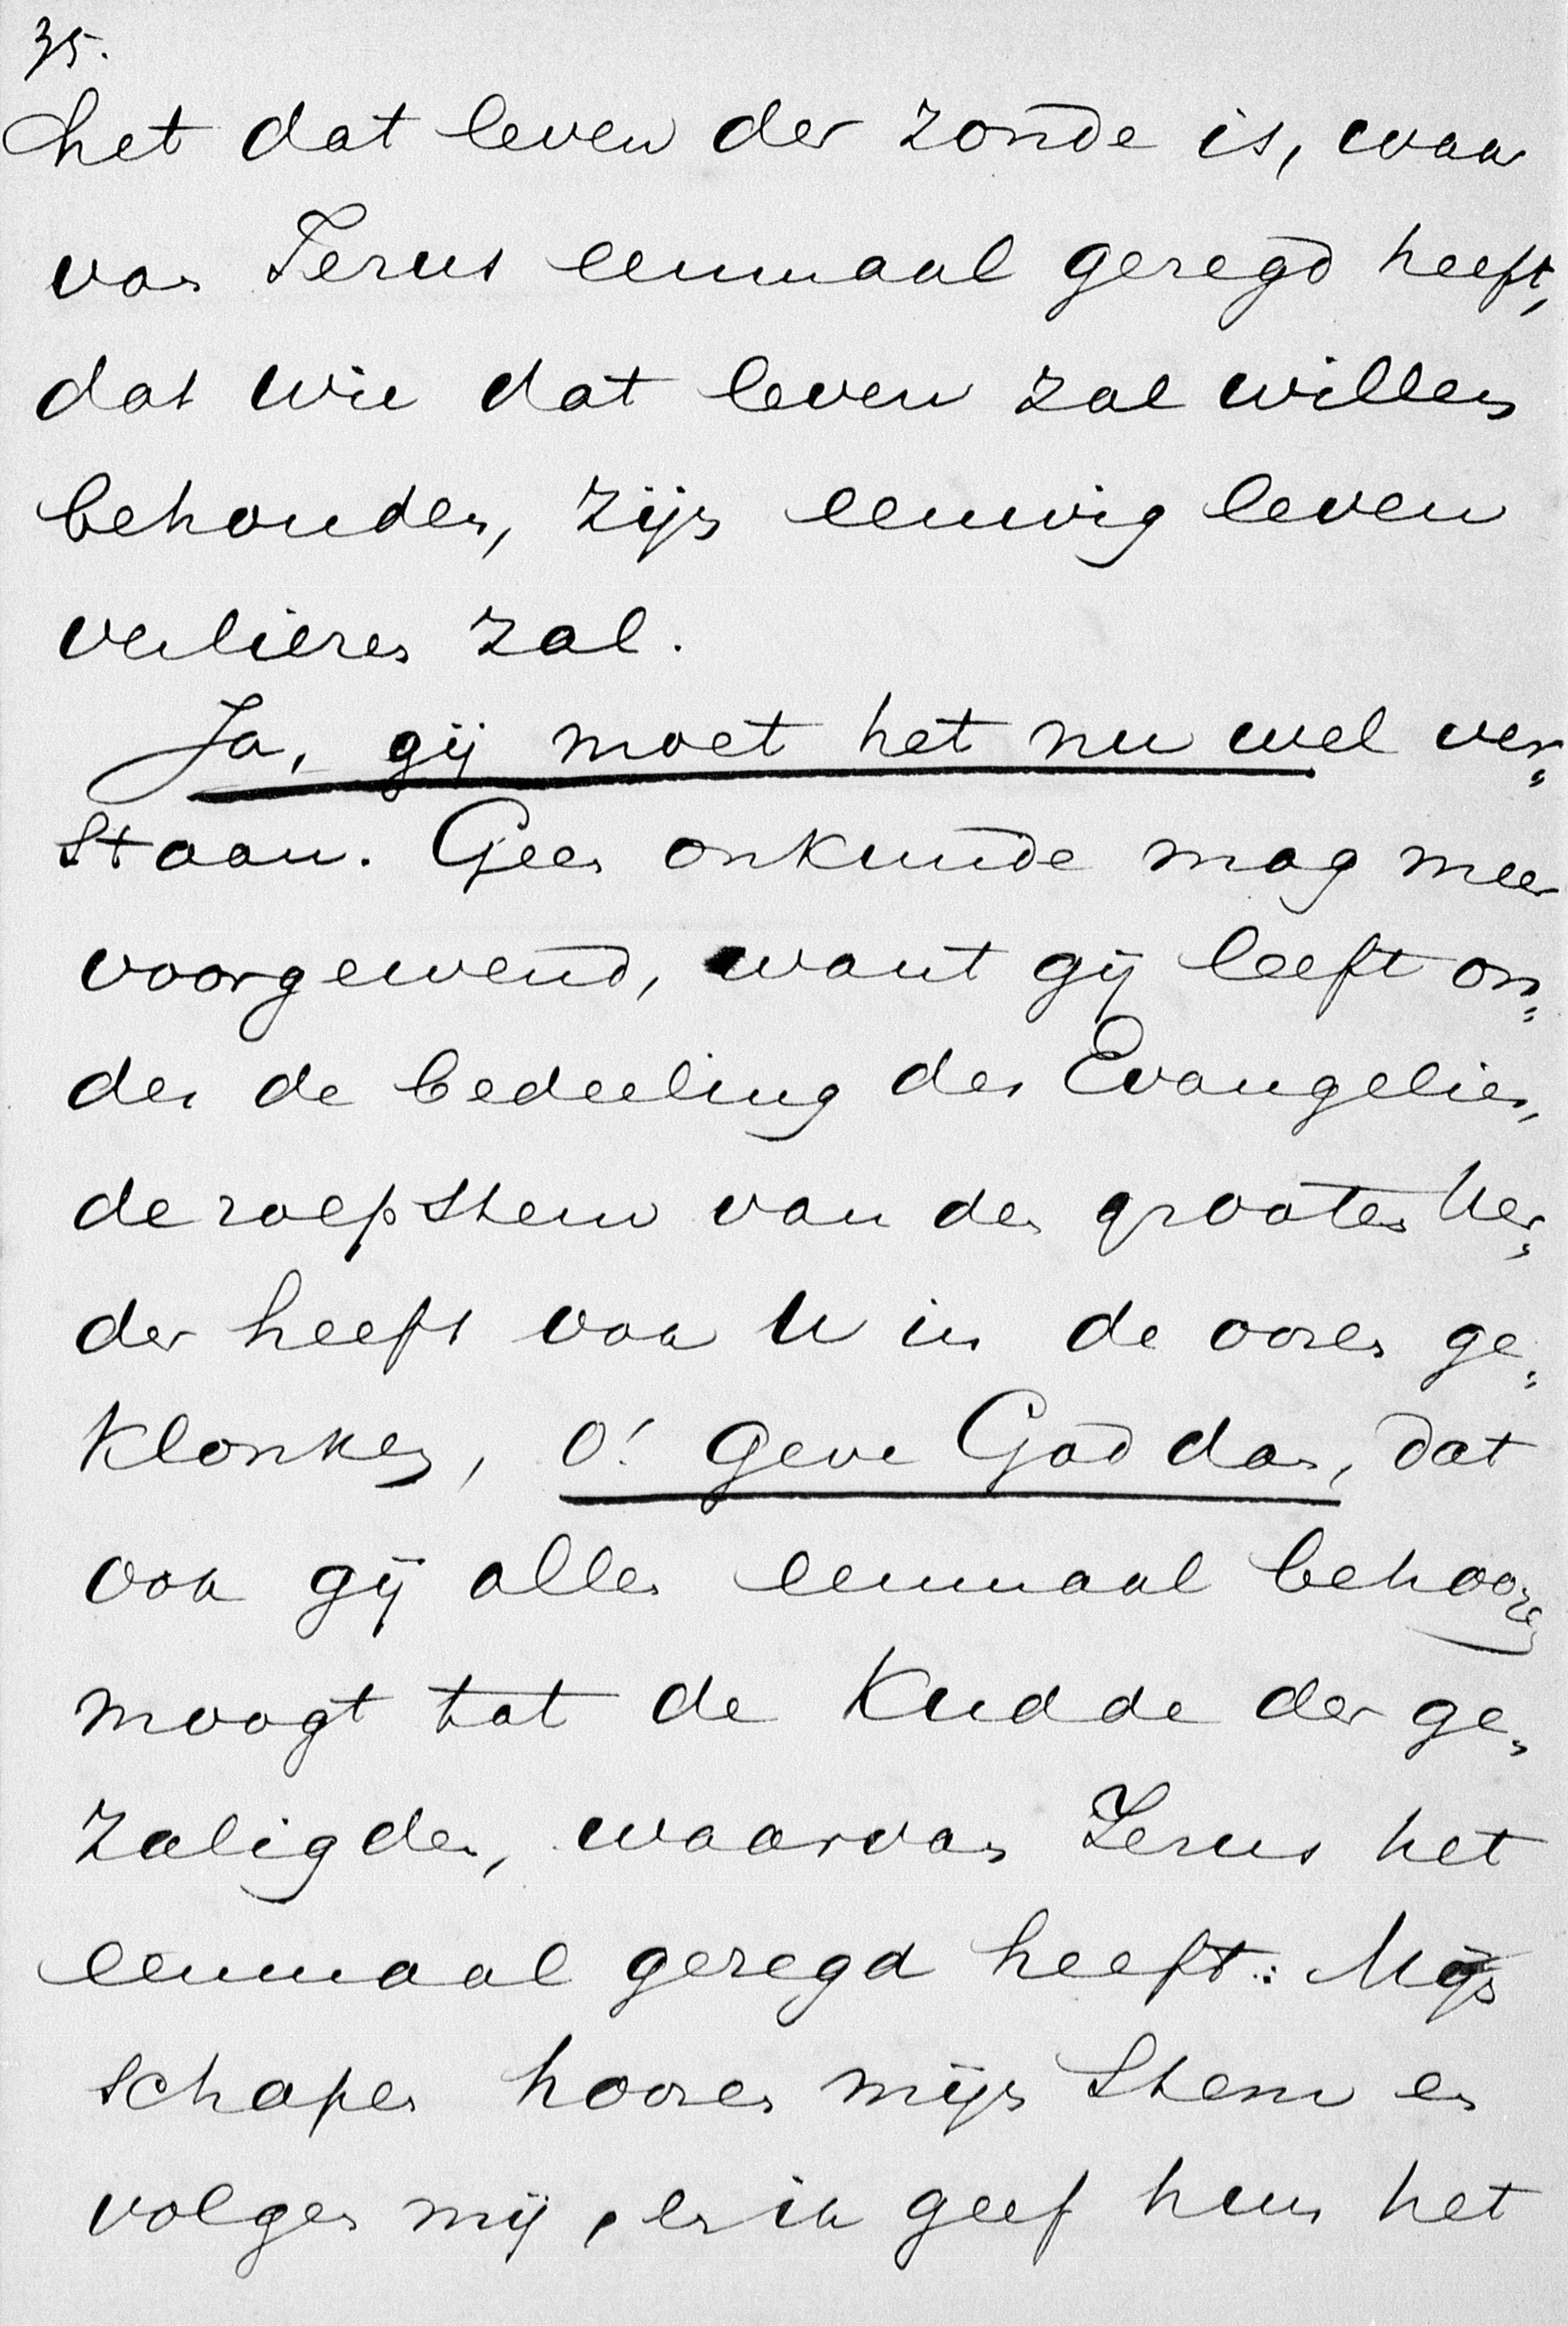 35.
het dat leven der zonde is, waar
van Jezus eenmaal gezegd heeft,
dat wie dat leven zal willen
behouden, zijn eeuwig leven
verliezen zal.
Ja, gij moet het nu wel ver-
staan. Geen onkunde mag meer
voorgewend, want gij leeft on-
der de bedeeling des Evangelies,
de roepstem van den grooten Her-
der heeft ook U in de ooren ge-
klonken, O! geve God dan, dat
ook gij allen eenmaal behooren
moogt tot de Kudde der ge-
zaligden, waarvan Jezus het
eenmaal gezegd heeft: Mijn
schapen hooren mijn Stem en
volgen mij, en ik geef hun het